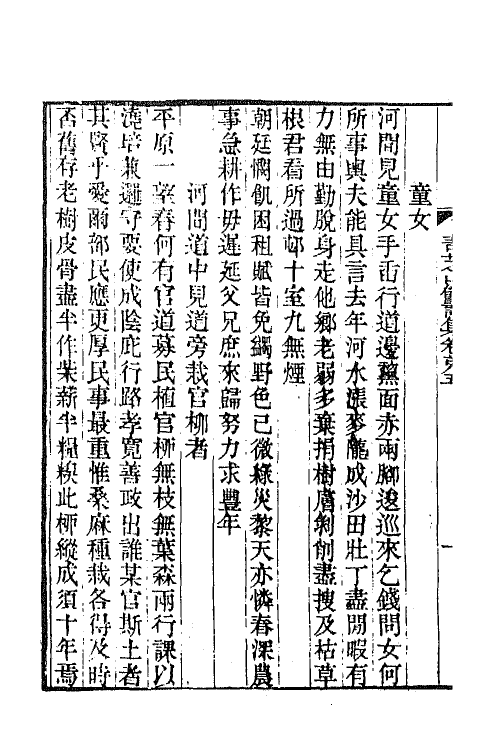 童女
河間見童女手臿行道邊黧面赤兩腳逡巡來乞錢問女何
所事輿夫能具言去年河水漲麥隴成沙田壯丁盡閒暇有
力無由勤脫身走他鄉老弱多棄捐樹膚剝削盡搜及枯草
根君看所過邨十室九無煙
朝廷憫飢困租賦皆免蠲野色已微綠災黎天亦憐春深農
事急耕作毋遲延父兄庶來歸努力求豐年
河間道中見道旁栽官柳者
平原一望春何有官道募民植官柳無枝無葉森兩行課以
澆培兼邏守要使成陰庇行路孝寬善政出誰某官斯土者
其賢乎愛爾部民應更厚民事最重惟桑麻種栽各得及時
否舊存老樹皮骨盡半作柴薪半糗此柳縱成須十年焉